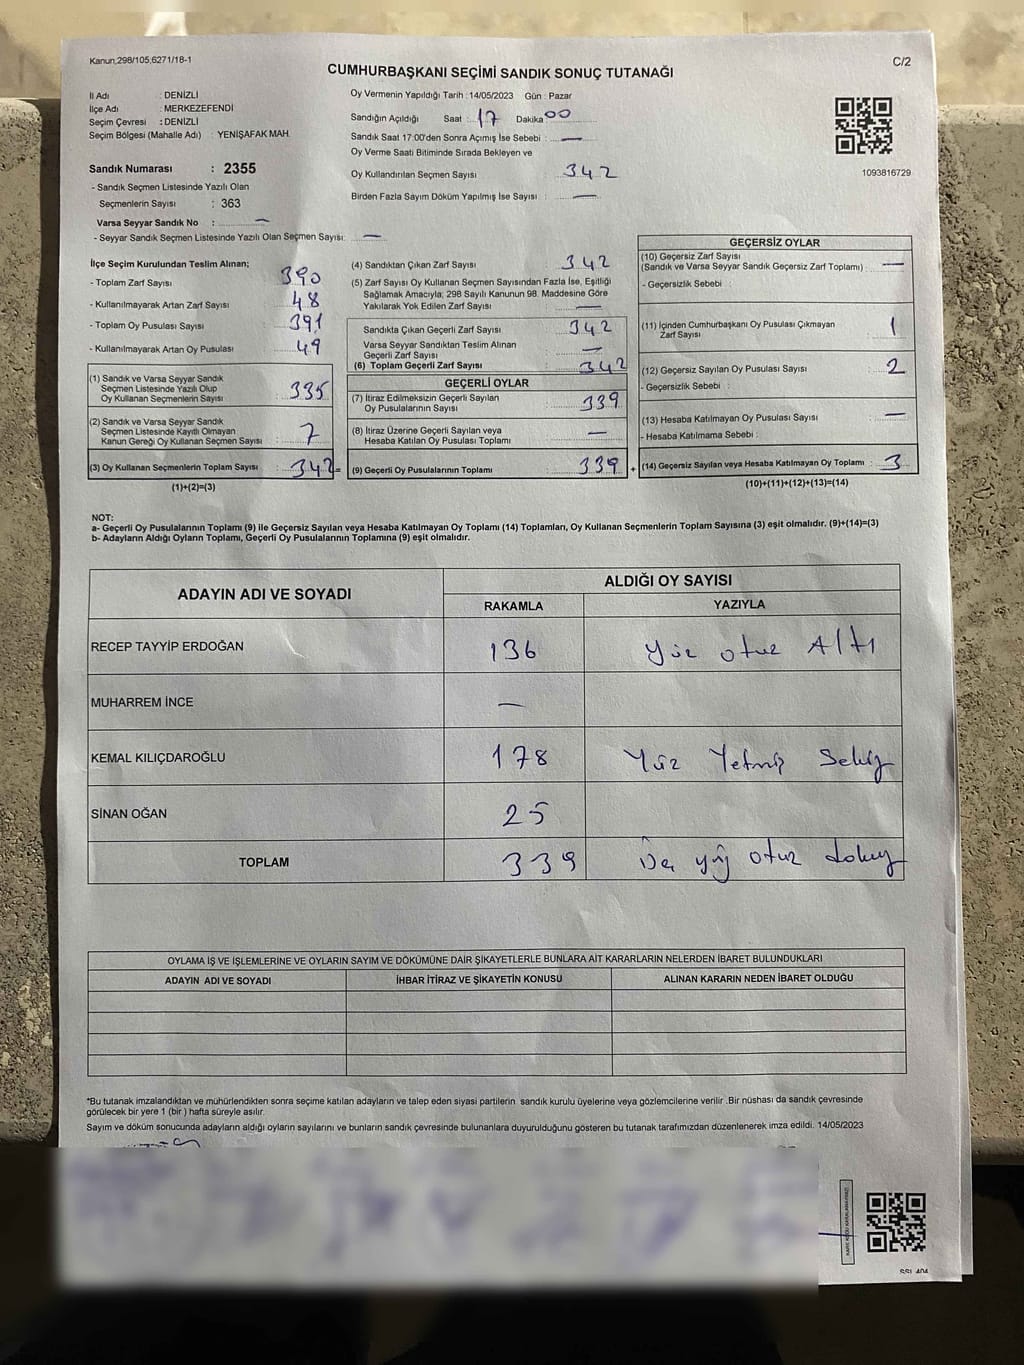 Kanun,298/105,6271/18-1
C/2
CUMHURBAŞKANI SEÇİMİ SANDIK SONUÇ TUTANAĞI
İl Adı : DENİZLİ
İlçe Adı : MERKEZEFENDİ
Seçim Çevresi : DENİZLİ
Seçim Bölgesi (Mahalle Adı) : YENİŞAFAK MAH.
Sandık Numarası : 2355
- Sandık Seçmen Listesinde Yazılı Olan
Seçmenlerin Sayısı : 363
Varsa Seyyar Sandık No : —
- Seyyar Sandık Seçmen Listesinde Yazılı Olan Seçmen Sayısı: —
Oy Vermenin Yapıldığı Tarih : 14/05/2023 Gün : Pazar
Sandığın Açıldığı Saat : 17 Dakika 00
Sandık Saat 17:00'den Sonra Açımış İse Sebebi : —
Oy Verme Saati Bitiminde Sırada Bekleyen ve
Oy Kullandırılan Seçmen Sayısı 342
Birden Fazla Sayım Döküm Yapılmış İse Sayısı : —
1093816729
İlçe Seçim Kurulundan Teslim Alınan;
- Toplam Zarf Sayısı 390
- Kullanılmayarak Artan Zarf Sayısı 48
- Toplam Oy Pusulası Sayısı 391
- Kullanılmayarak Artan Oy Pusulası 49
(1) Sandık ve Varsa Seyyar Sandık
Seçmen Listesinde Yazılı Olup
Oy Kullanan Seçmenlerin Sayısı 335
(2) Sandık ve Varsa Seyyar Sandık
Seçmen Listesinde Kayıtlı Olmayan
Kanun Gereği Oy Kullanan Seçmen Sayısı 7
(3) Oy Kullanan Seçmenlerin Toplam Sayısı 342 =
(1)+(2)=(3)
(4) Sandıktan Çıkan Zarf Sayısı 342
(5) Zarf Sayısı Oy Kullanan Seçmen Sayısından Fazla İse, Eşitliği
Sağlamak Amacıyla; 298 Sayılı Kanunun 98. Maddesine Göre
Yakılarak Yok Edilen Zarf Sayısı : —
Sandıkta Çıkan Geçerli Zarf Sayısı 342
Varsa Seyyar Sandıktan Teslim Alınan
Geçerli Zarf Sayısı —
(6) Toplam Geçerli Zarf Sayısı 342
GEÇERLİ OYLAR
(7) İtiraz Edilmeksizin Geçerli Sayılan
Oy Pusulalarının Sayısı 339
(8) İtiraz Üzerine Geçerli Sayılan veya
Hesaba Katılan Oy Pusulası Toplamı —
(9) Geçerli Oy Pusulalarının Toplamı 339 +
GEÇERSİZ OYLAR
(10) Geçersiz Zarf Sayısı
(Sandık ve Varsa Seyyar Sandık Geçersiz Zarf Toplamı) : —
- Geçersizlik Sebebi :
(11) İçinden Cumhurbaşkanı Oy Pusulası Çıkmayan
Zarf Sayısı 1
(12) Geçersiz Sayılan Oy Pusulası Sayısı : 2
- Geçersizlik Sebebi :
(13) Hesaba Katılmayan Oy Pusulası Sayısı : —
- Hesaba Katılmama Sebebi :
(14) Geçersiz Sayılan veya Hesaba Katılmayan Oy Toplamı : 3
(10)+(11)+(12)+(13)=(14)
NOT:
a- Geçerli Oy Pusulalarının Toplamı (9) ile Geçersiz Sayılan veya Hesaba Katılmayan Oy Toplamı (14) Toplamları, Oy Kullanan Seçmenlerin Toplam Sayısına (3) eşit olmalıdır. (9)+(14)=(3)
b- Adayların Aldığı Oyların Toplamı, Geçerli Oy Pusulalarının Toplamına (9) eşit olmalıdır.
ADAYIN ADI VE SOYADI ALDIĞI OY SAYISI
RAKAMLA YAZIYLA
RECEP TAYYİP ERDOĞAN 136 Yüz otuz Altı
MUHARREM İNCE —
KEMAL KILIÇDAROĞLU 178 Yüz Yetmiş Sekiz
SİNAN OĞAN 25
TOPLAM 339 Üç yüz otuz dokuz
OYLAMA İŞ VE İŞLEMLERİNE VE OYLARIN SAYIM VE DÖKÜMÜNE DAİR ŞİKAYETLERLE BUNLARA AİT KARARLARIN NELERDEN İBARET BULUNDUKLARI
ADAYIN ADI VE SOYADI İHBAR İTİRAZ VE ŞİKAYETİN KONUSU ALINAN KARARIN NEDEN İBARET OLDUĞU
*Bu tutanak imzalandıktan ve mühürlendikten sonra seçime katılan adayların ve talep eden siyasi partilerin sandık kurulu üyelerine veya gözlemcilerine verilir .Bir nüshası da sandık çevresinde
görülecek bir yere 1 (bir ) hafta süreyle asılır.
Sayım ve döküm sonucunda adayların aldığı oyların sayılarını ve bunların sandık çevresinde bulunanlara duyurulduğunu gösteren bu tutanak tarafımızdan düzenlenerek imza edildi. 14/05/2023